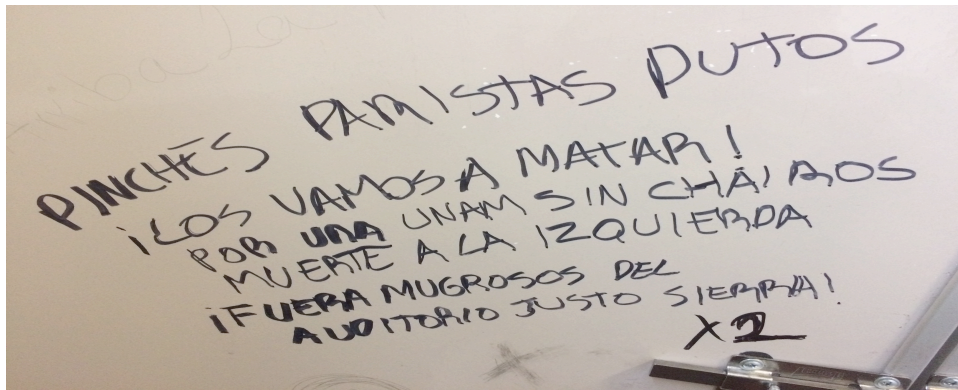 PINCHES PARISTAS PUTOS
¡LOS VAMOS A MATAR!
POR UNA UNAM SIN CHAIROS
MUERTE A LA IZQUIERDA
¡FUERA MUGROSOS DEL
AUDITORIO JUSTO SIERRA!
X2